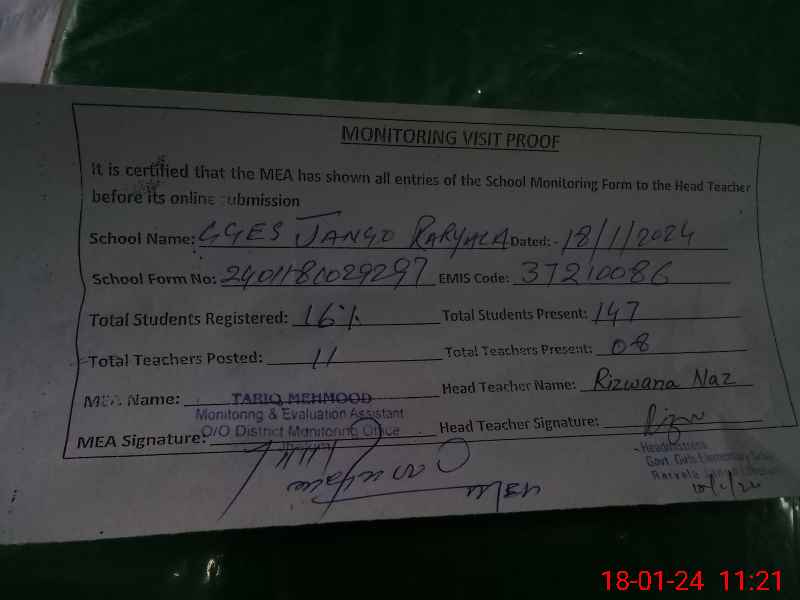 MONITORING VISIT PROOF
It is certified that the MEA has shown all entries of the School Monitoring Form to the Head Teacher
before its online submission
School Name: GGES JANGO RARYALA Dated:- 18/1/2024
School Form No: 2401181029297 EMIS Code: 37210086
Total Students Registered: Total Students Present: 147
Total Teachers Posted: 11 Total Teachers Present: 08
MEA Name: TARIQ MEHMOOD Head Teacher Name: Rizwana Naz
Monitoring & Evaluation Assistant
O/O District Monitoring Office
MEA Signature: Head Teacher Signature:
Headmistress
Govt. Girls Elementary
18-01-24 11:21